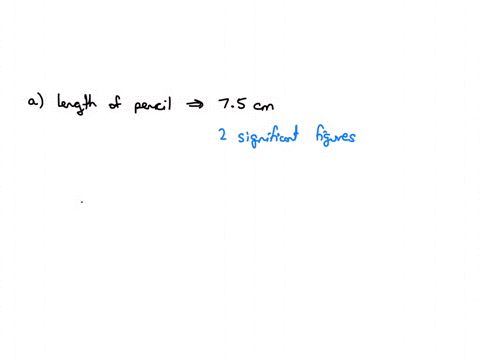 a) length of pencil ⇒ 7.5 cm
2 significant figures